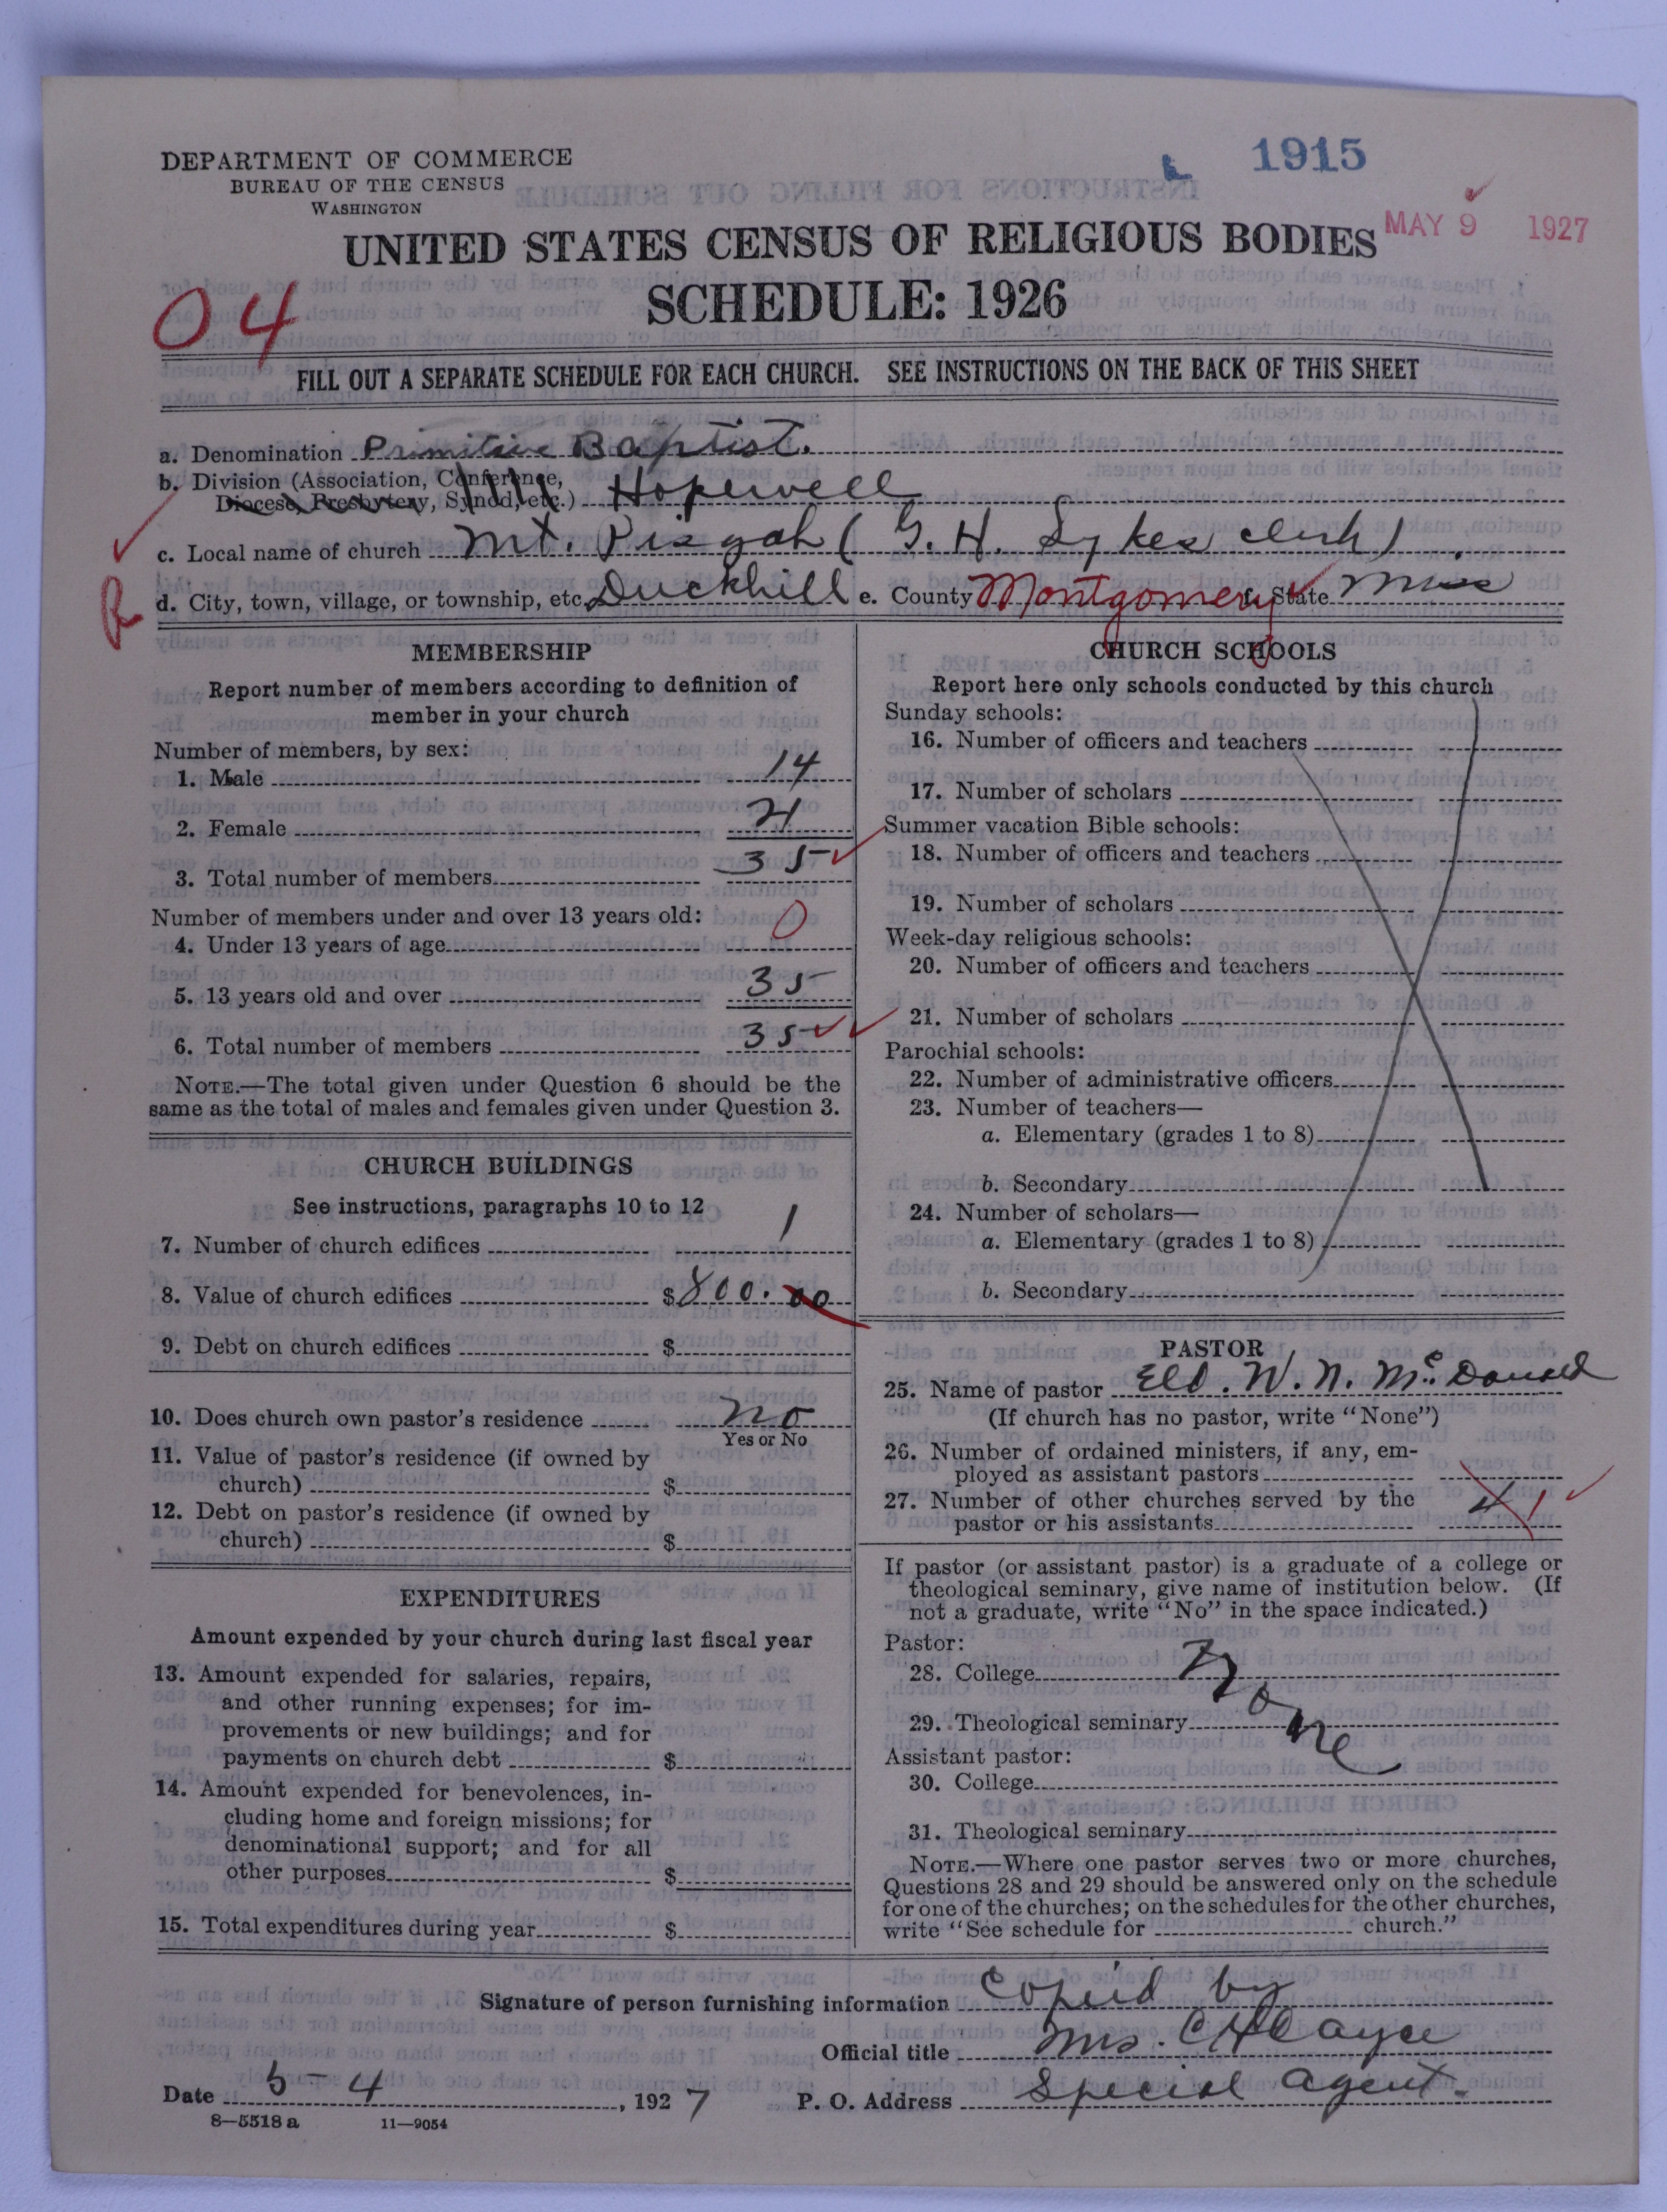 DEPARTMENT OF COMMERCE
BUREAU OF THE CENSUS
WASHINGTON
1915
MAY 9 1927
UNITED STATES CENSUS OF RELIGIOUS BODIES
SCHEDULE: 1926
04
FILL OUT A SEPARATE SCHEDULE FOR EACH CHURCH. SEE INSTRUCTIONS ON THE BACK OF THIS SHEET
a. Denomination Primitive Baptist.
b. Division (Association, Conference,
Diocese, Presbytery, Synod, etc.) Hopewell
c. Local name of church Mt. Pisgah ( G. H. Sykes clerk)
R
d. City, town, village, or township, etc. Duckhill e. County Montgomery f. State Miss
MEMBERSHIP
Report number of members according to definition of
member in your church
Number of members, by sex:
1. Male 14
2. Female 21
3. Total number of members 35
Number of members under and over 13 years old:
4. Under 13 years of age 0
5. 13 years old and over 35
6. Total number of members 35
NOTE.—The total given under Question 6 should be the
same as the total of males and females given under Question 3.
CHURCH BUILDINGS
See instructions, paragraphs 10 to 12
7. Number of church edifices 1
8. Value of church edifices $800.00
9. Debt on church edifices $
10. Does church own pastor's residence no
Yes or No
11. Value of pastor's residence (if owned by
church) $
12. Debt on pastor's residence (if owned by
church) $
EXPENDITURES
Amount expended by your church during last fiscal year
13. Amount expended for salaries, repairs,
and other running expenses; for im-
provements or new buildings; and for
payments on church debt $
14. Amount expended for benevolences, in-
cluding home and foreign missions; for
denominational support; and for all
other purposes $
15. Total expenditures during year $
CHURCH SCHOOLS
Report here only schools conducted by this church
Sunday schools:
16. Number of officers and teachers
17. Number of scholars
Summer vacation Bible schools:
18. Number of officers and teachers
19. Number of scholars
Week-day religious schools:
20. Number of officers and teachers
21. Number of scholars
Parochial schools:
22. Number of administrative officers
23. Number of teachers—
a. Elementary (grades 1 to 8)
b. Secondary
24. Number of scholars—
a. Elementary (grades 1 to 8)
b. Secondary
PASTOR
25. Name of pastor Eld. W. N. McDonald
(If church has no pastor, write "None")
26. Number of ordained ministers, if any, em-
ployed as assistant pastors
27. Number of other churches served by the
pastor or his assistants
If pastor (or assistant pastor) is a graduate of a college or
theological seminary, give name of institution below. (If
not a graduate, write "No" in the space indicated.)
Pastor:
28. College None
29. Theological seminary
Assistant pastor:
30. College
31. Theological seminary
NOTE.—Where one pastor serves two or more churches,
Questions 28 and 29 should be answered only on the schedule
for one of the churches; on the schedules for the other churches,
write "See schedule for church."
Signature of person furnishing information Copied by
Official title Mrs. C H Cayce
Date 5-4, 1927 P. O. Address Special Agent.
8—5518 a 11—9054